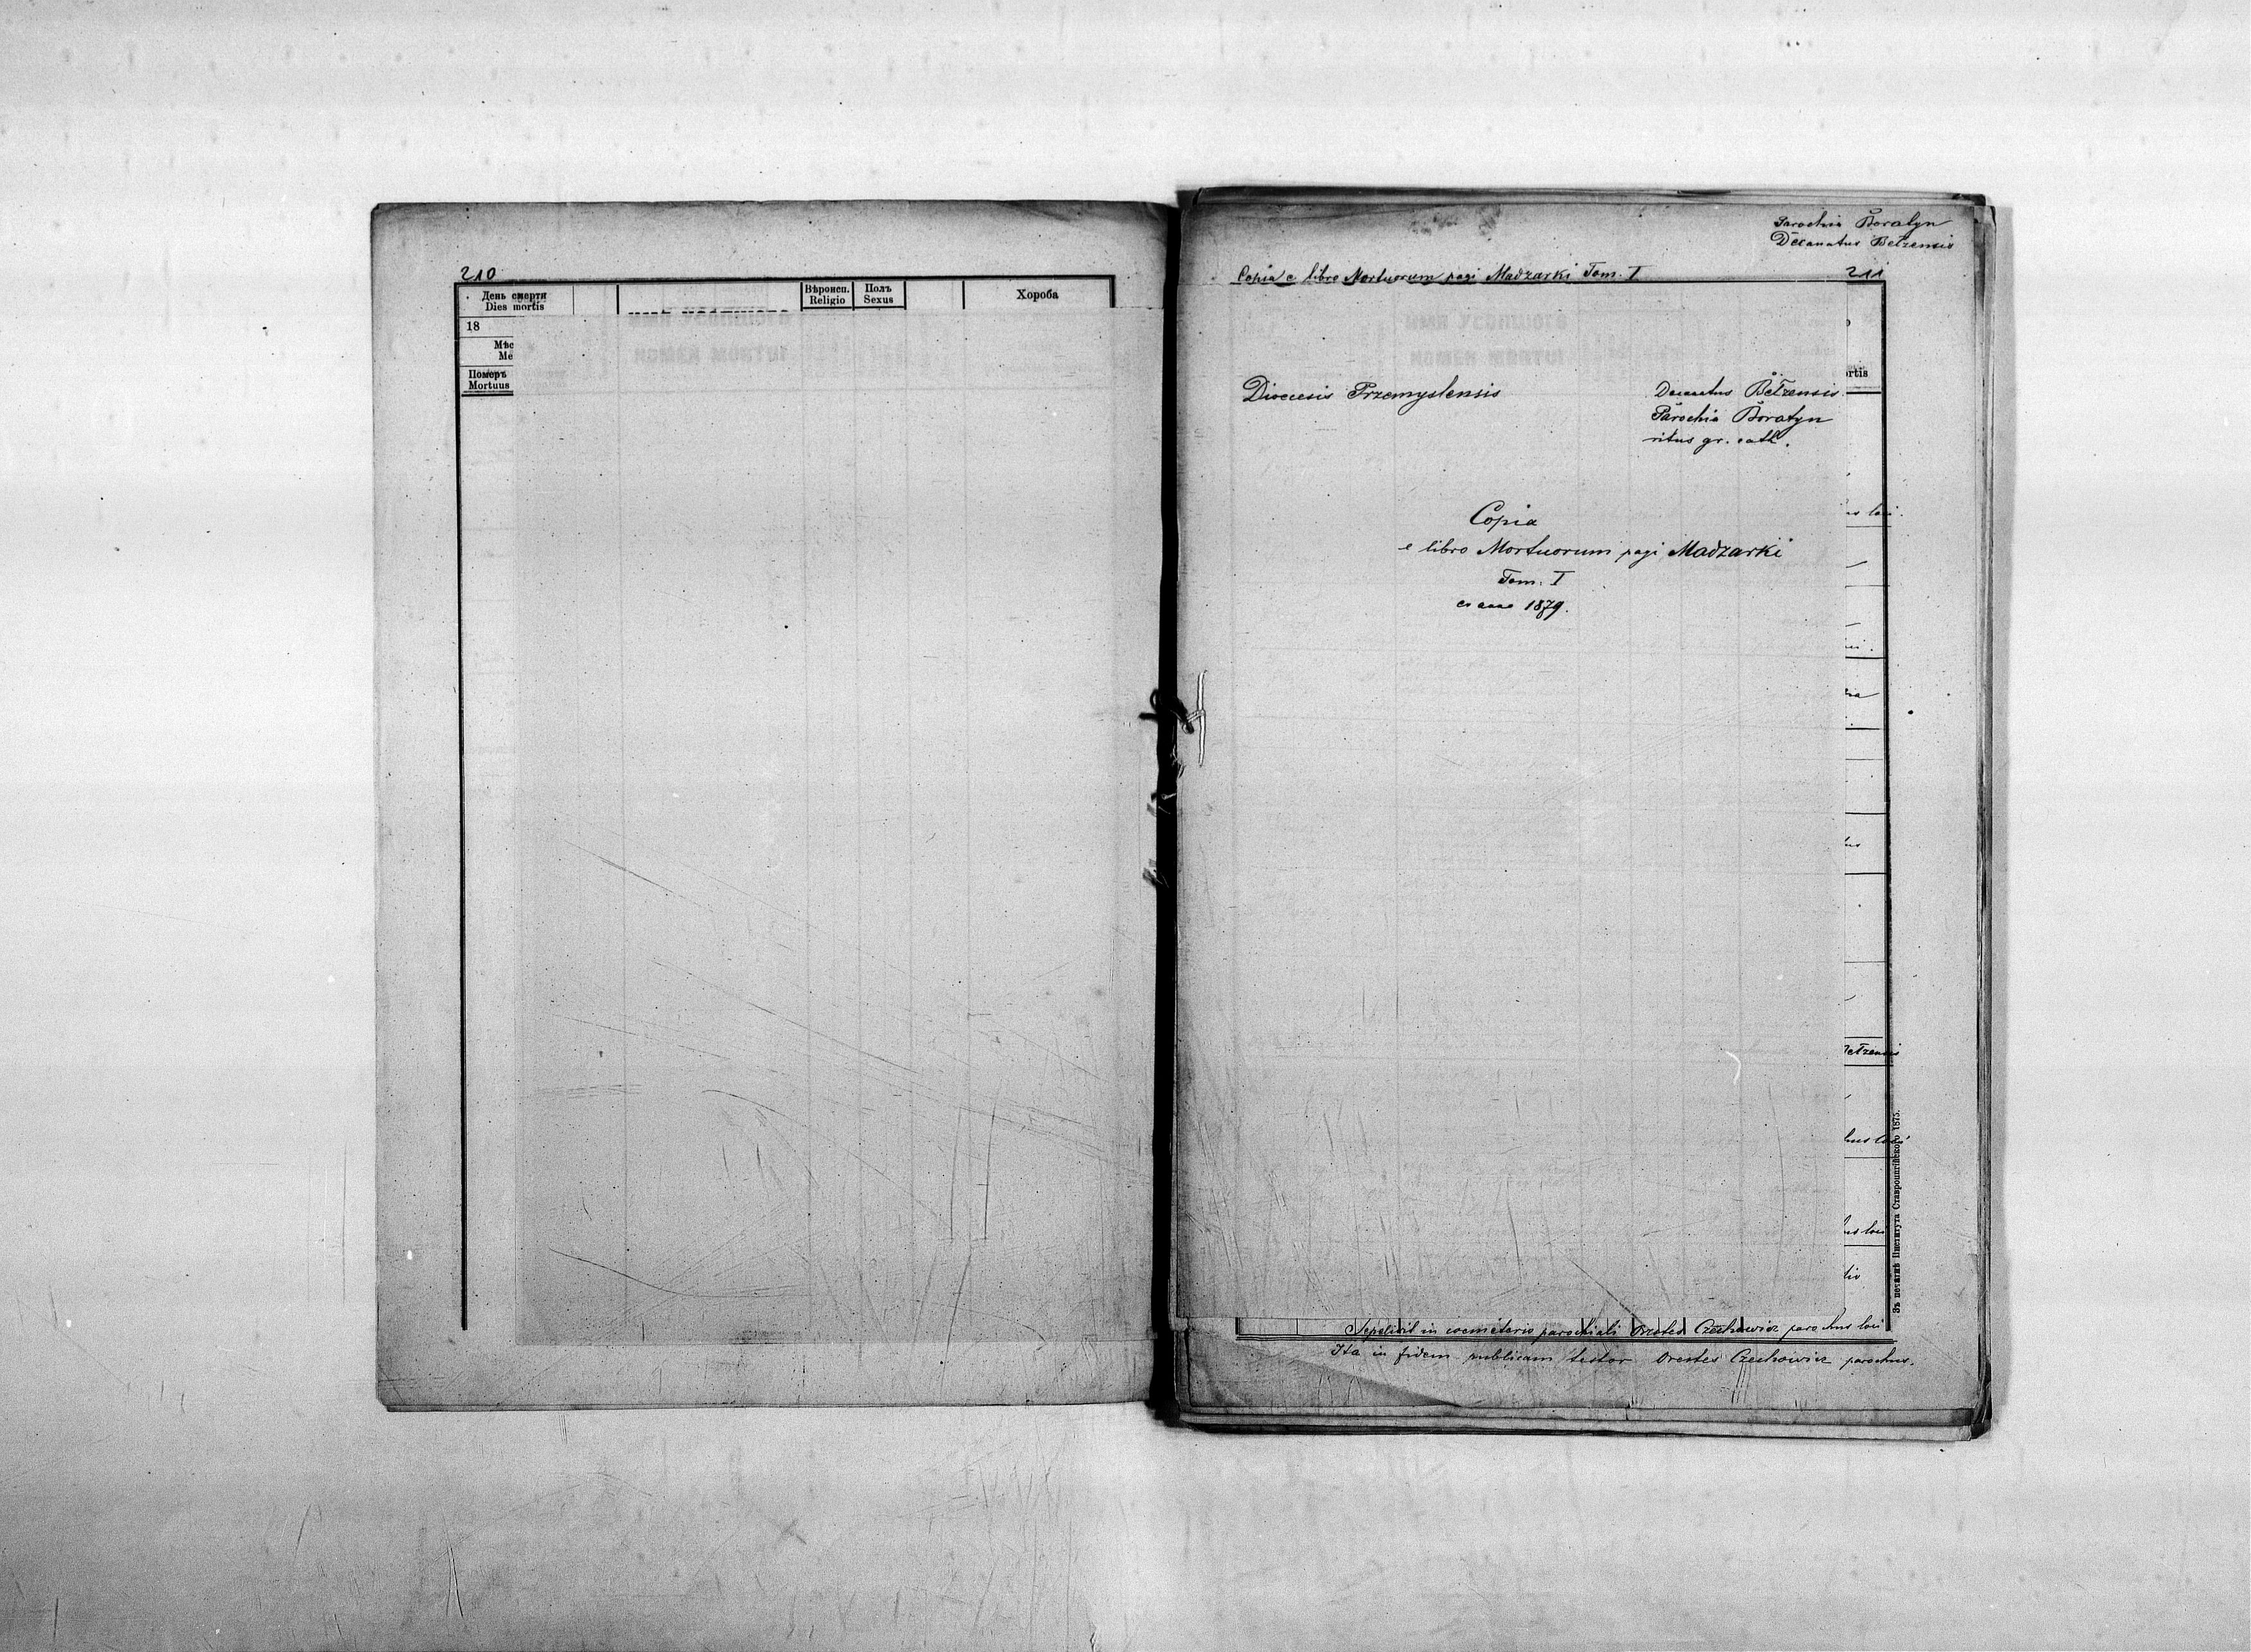 210
День смерти
Dies mortis
Вѣроисп.
Religio
Полъ
Sexus
Хороба
18
Мѣс
Me
Померъ
Mortuus
Parochia Boratyn
Decanatus Bełzensis
Copia e libro Mortuorum pagi Madzarki Tom. I
211
ИМЯ УСОПШОГО
NOMEN MORTUI
rtis
Dioecesis Przemyslensis
Decanatus Bełzensis
Parochia Boratyn
ritus gr. cath.
Copia
e libro Mortuorum pagi Madzarki
Tom. I
1879.
us loci.
ełzensis
hus loci
us loci
Зъ печатнѣ Института Ставропигійского 1875.
Sepelivit in coemeterio parochiali Orestes Czechowicz parochus loci
Ita in fidem publicam testor Orestes Czechowicz parochus.